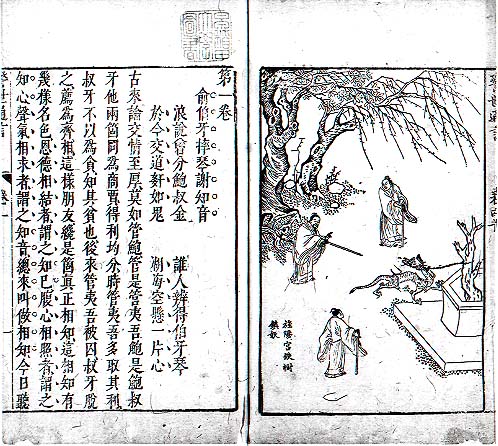 第一卷
俞伯牙摔琴謝知音
浪說曾分鮑叔金　誰人辨得伯牙琴
於今交道奸如鬼　湖海空懸一片心
古來論交情至厚莫如管鮑管是管夷吾鮑是鮑叔
牙他兩箇同為商賈得利均分時管夷吾多取其利
叔牙不以為貪知其貧也後來管夷吾被囚叔牙脫
之薦為齊相這樣朋友纔是箇真正相知這相知有
幾樣名色恩德相結者謂之知己腹心相照者謂之
知心聲氣相求者謂之知音總來叫做相知今日聽
警世通言
卷一
旌陽宮鐵樹
鎮妖
警世通言